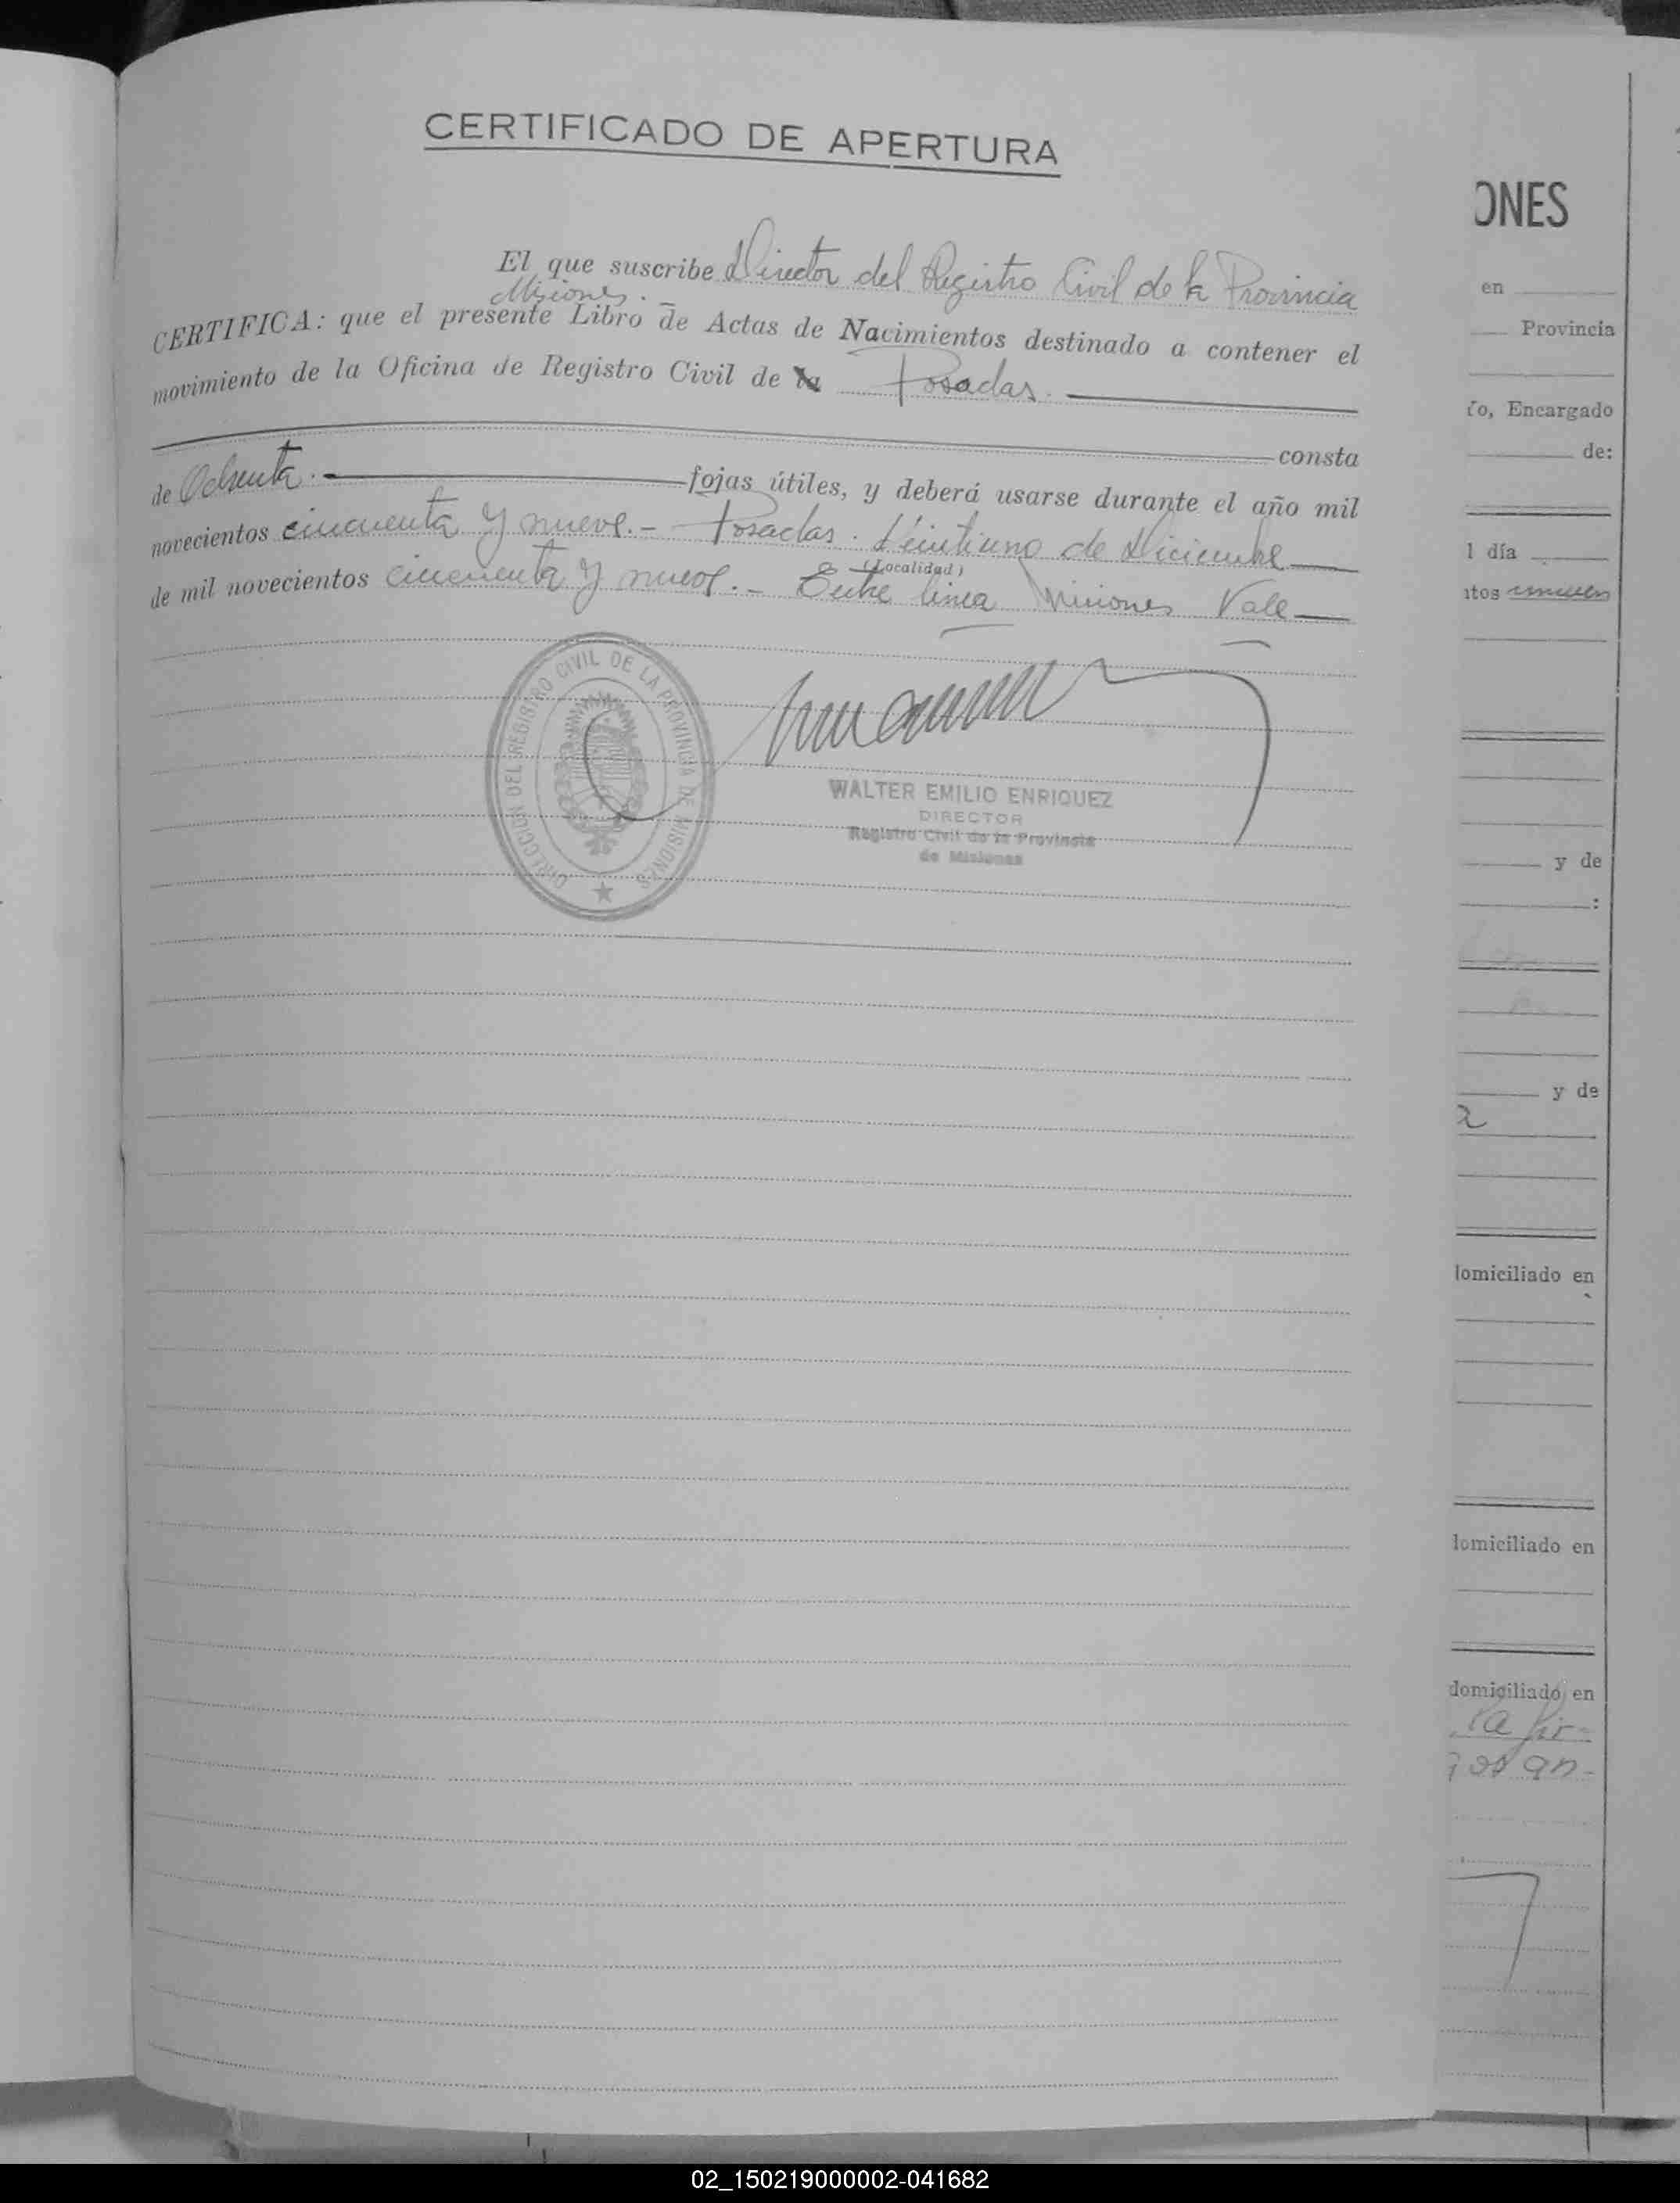 CERTIFICADO DE APERTURA
El que suscribe Director del Registro Civil de la Provincia
Misiones. –
CERTIFICA: que el presente Libro de Actas de Nacimientos destinado a contener el
movimiento de la Oficina de Registro Civil de la Posadas.
consta
de Ochenta. fojas útiles, y deberá usarse durante el año mil
novecientos cincuenta y nueve. – Posadas. Veintiuno de Diciembre
(Localidad)
de mil novecientos cincuenta y nueve. – Entre linea Misiones Vale
DIRECCION DEL REGISTRO CIVIL DE LA PROVINCIA DE MISIONES
WALTER EMILIO ENRIQUEZ
DIRECTOR
Registro Civil de la Provincia
de Misiones
ONES
en
Provincia
to, Encargado
de:
l día
ntos
y de
:
y de
2
lomiciliado en
lomiciliado en
domiciliado en
la fir-
02_150219000002-041682